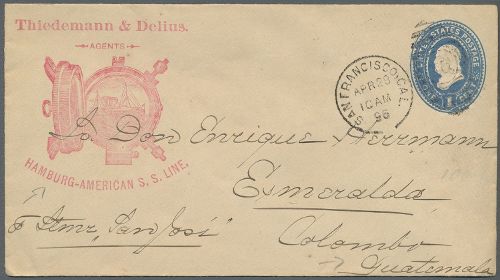 Thiedemann & Delius.
AGENTS
HAMBURG-AMERICAN S. S. LINE.
SAN FRANCISCO, CAL.
APR 28
10 AM
96
UNITED STATES POSTAGE
Don Enrique Herrmann
Esmeralda
Colombo
Guatemala
Stmr "San José"